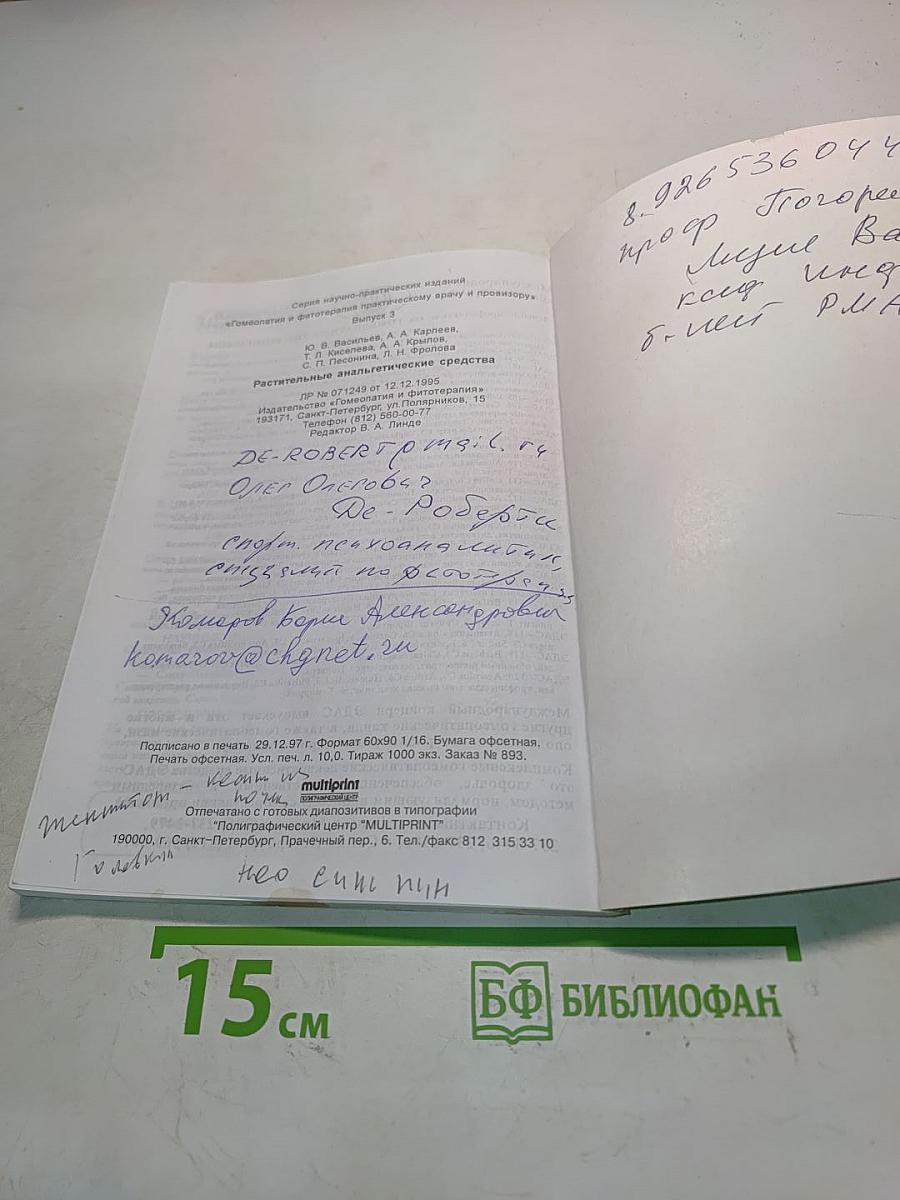 Серия научно-практических изданий
«Гомеопатия и фитотерапия практическому врачу и провизору»
Выпуск 3
Ю. В. Васильев, А. А. Карпеев,
Т. Л. Киселева, А. А. Крылов,
С. П. Песонина, Л. Н. Фролова
Растительные анальгетические средства
ЛР № 071249 от 12.12.1995
Издательство «Гомеопатия и фитотерапия»
193171, Санкт-Петербург, ул.Полярников, 15
Телефон (812) 560-00-77
Редактор В. А. Линде
DE-ROBERT@mail.ru
Олег Олегович
Де-Роберти
спорт. психоаналитик,
по
Комаров Борис Александрович
komarov@chgnet.ru
Подписано в печать 29.12.97 г. Формат 60х90 1/16. Бумага офсетная.
Печать офсетная. Усл. печ. л. 10,0. Тираж 1000 экз. Заказ № 893.
multiprint
ПОЛИГРАФИЧЕСКИЙ ЦЕНТР
Отпечатано с готовых диапозитивов в типографии
"Полиграфический центр "MULTIPRINT"
190000, г. Санкт-Петербург, Прачечный пер., 6. Тел./факс 812 315 33 10
нео
8-926 536 04 4
проф Погорел
Ва
каф инф
РМА
15 см
БФ БИБЛИОФАН